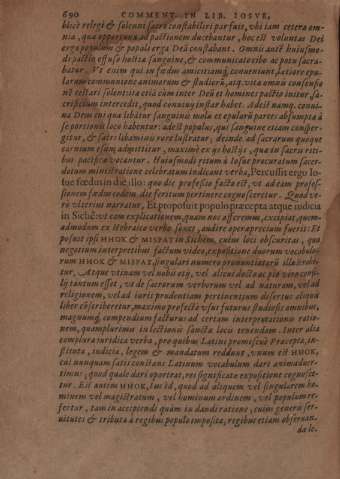 690 COMMENT. IN LIB. IOSVE,
blicè relegi & solenni sacro constabiliri par fuit, vbi tam cetera om-
nia, quæ opportuna ad pactionem ducebantur, hoc est voluntas Dei
erga populum & populi erga Deũ constabant. Omnis autẽ huiusmo-
di pactio effuso hostiæ sanguine, & communicato cibo ac potu sacra-
batur. Vt enim qui in fœdus amicitiamq; conueniunt, lætiore epu-
larum communione animorum & studiorũ, atq. vitæ omnis consensio
nẽ testari solent: ita etiã cùm inter Deũ et homines pactio initur, sa-
crificium intercedit, quod conuiuij instar habet. Adest namq. conui-
ua Deus cui quæ libatur sanguinis mola et epularũ partes absumpta à
se portionis loco habentur: adest populus, qui sanguine etiam consper-
gitur, & sacro libamine rore lustratur, deinde ad sacrarum quoque
carnium esum admittitur, maximè ex ijs hostijs, quæ in sacris riti-
bus pacificæ vocantur. Huiusmodi ritum à Iosue procuratum sacer-
dotum ministratione celebratum indicant verba, Percussit ergo Io-
sue fœdus in die illo: quo die professio facta est, vt ad eam profes-
sionem fœdus eodem die feritum pertinere cognosceretur. Quod ve-
rò vlterius narratur, Et proposuit populo præcepta atque iudicia
in Sichẽ: vt eam explicationem, quam nos afferemus, excipiat, quem-
admodum ex Hebraico verbo sonet, audire operæprecium fuerit: Et
posuit ipsi HHOK & MISPAT in Sichem, cuius loci obscuritas, quæ
negotium interpretibus factum video, expositione duorum vocabulo-
rum HHOK & MISPAT, singulari numero pronuntiatorũ illustrabi-
tur. Atque vtinam vel nobis otij, vel alicui docto ac pio viro consi-
lij tantum esset, vt de sacrorum verborum vel ad naturam, vel ad
religionem, vel ad iuris prudentiam pertinentium disertus aliquis
liber cõscriberetur, maximo profectò vsui futurus studiosis omnibus,
magnumq. compendium facturus ad certam interpretationis ratio-
nem, quamplurimis in lectionis sanctæ locis tenendam. Inter alia
complura iuridica verba, pro quibus Latinis promiscuè Præcepta, in-
stituta, iudicia, legem & mandatum reddunt, vnum est HHOK,
cui nunquam satis constans Latinum vocabulum dare animaduer-
timus; quod quale dari oporteat, rei significatæ expositione cognosce-
tur. Est autem HHOK, ius id, quod ad aliquem vel singularem ho-
minem vel magistratum, vel hominum ordinem, vel populum re-
fertur, tam in accipiendi quàm in dandi ratione, cuius generis ser-
uitutes & tributa à regibus populo imposita, regibus etiam obseruan-
da lo.